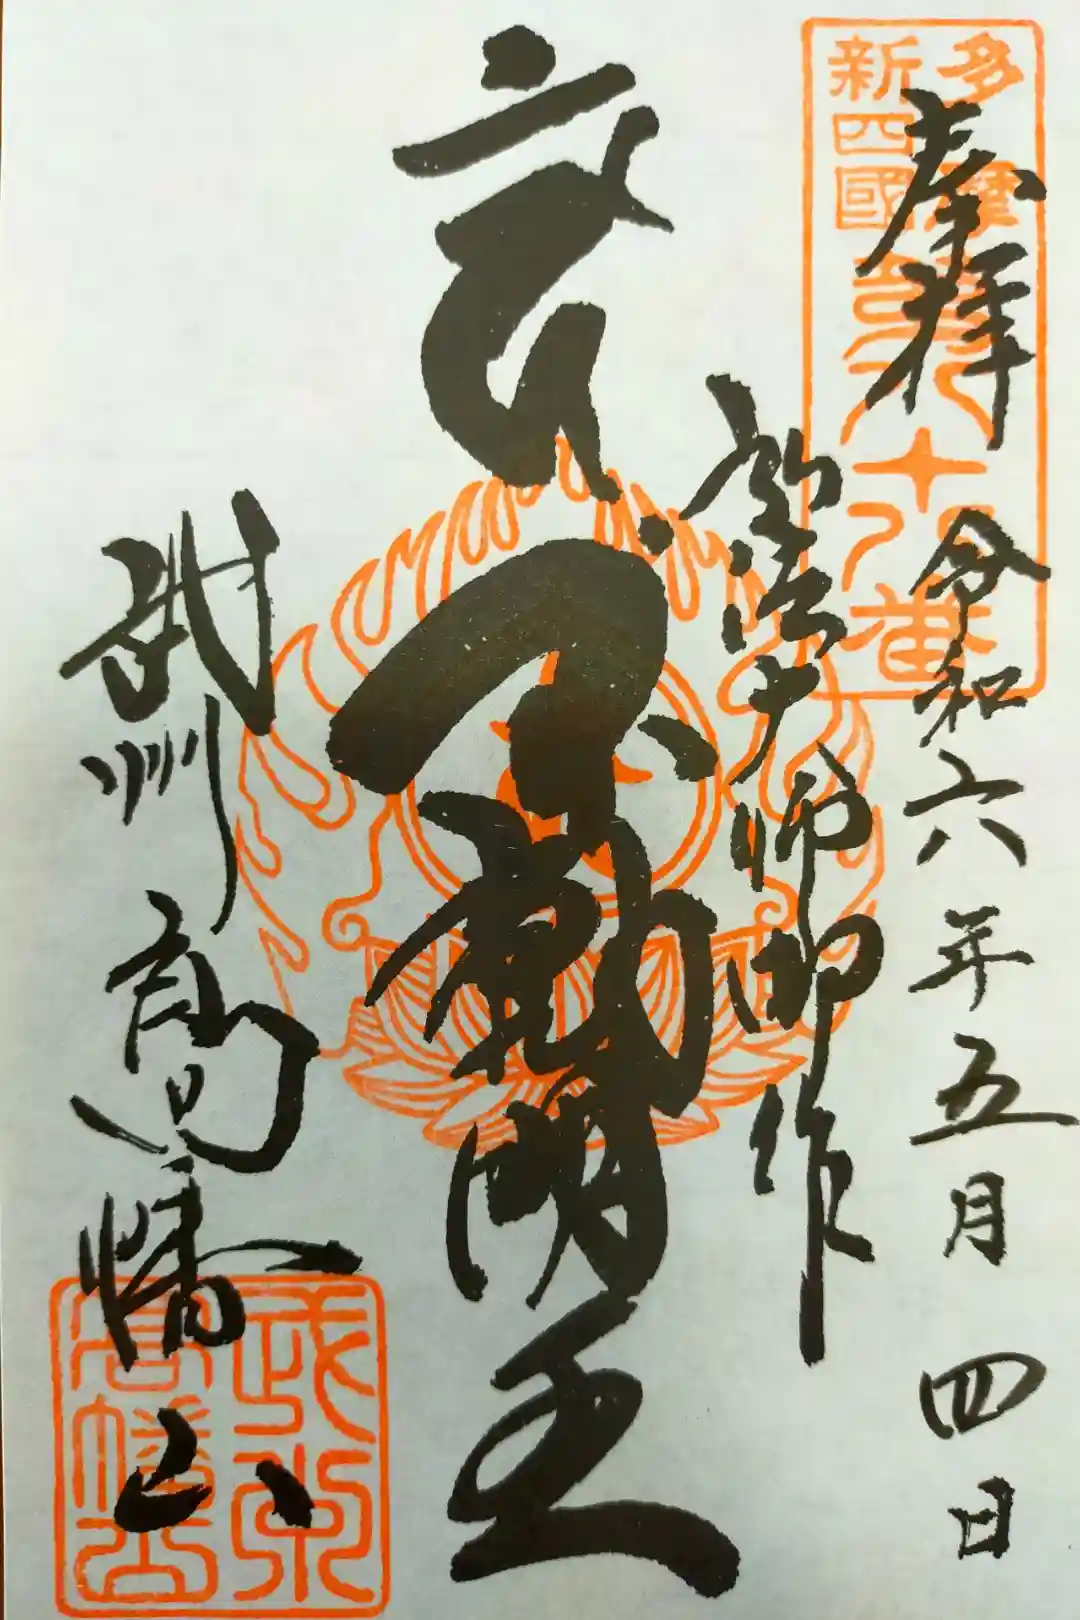 多摩
新四國
第八十八番
奉拝
令和六年五月四日
弘法大師御作
不動明王
武州高幡山
武州
高幡山